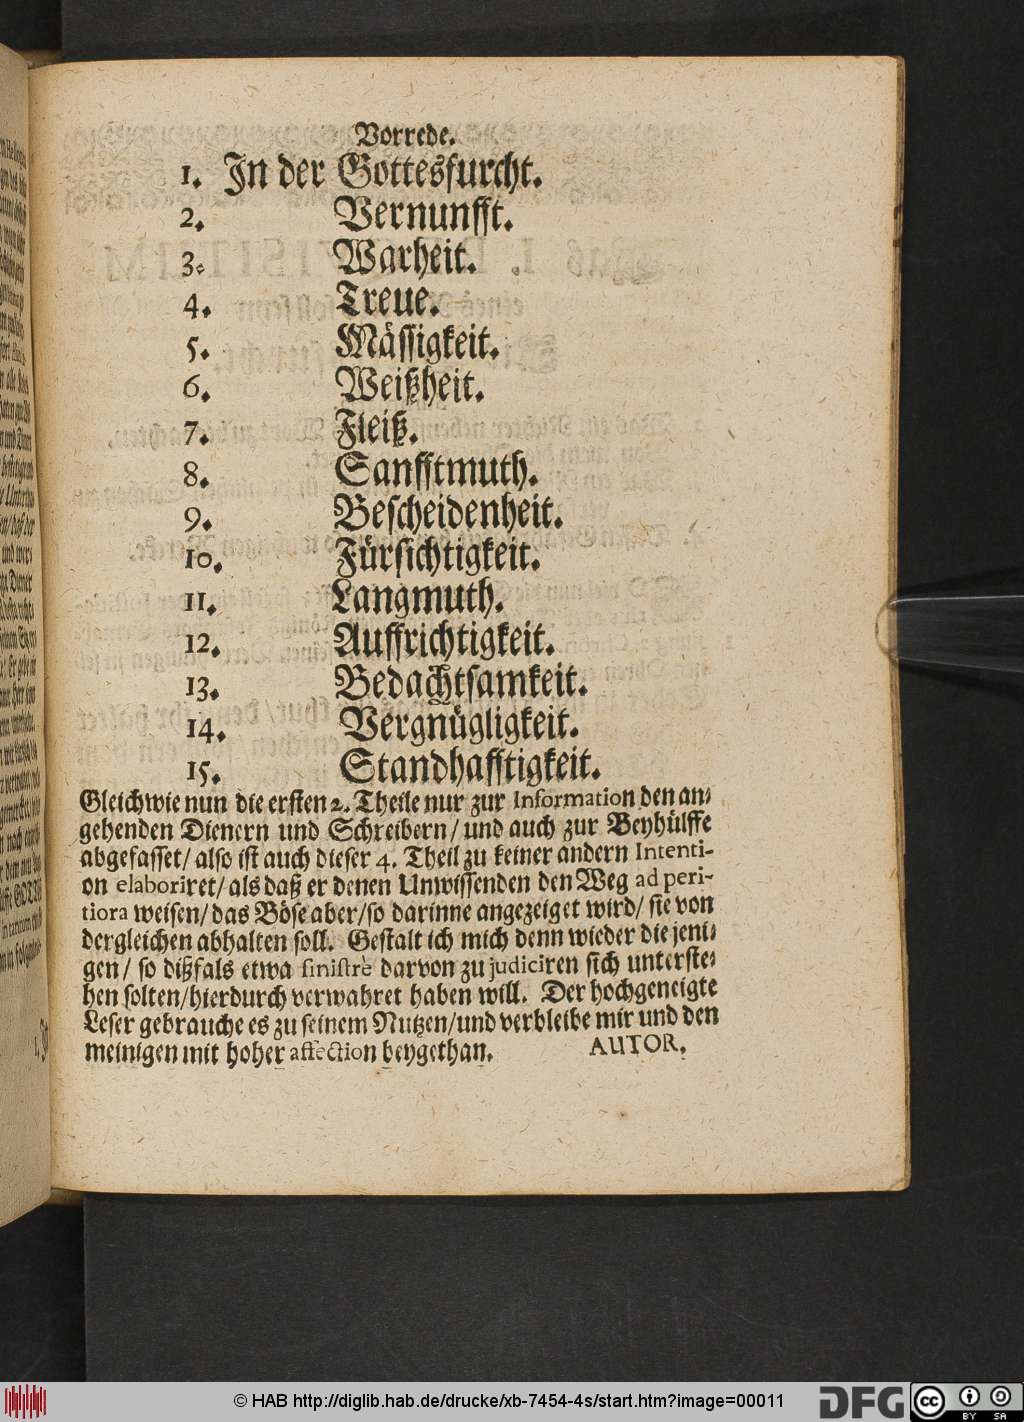 Vorrede.
1. In der Gottesfurcht.
2. Vernunfft.
3. Warheit.
4. Treue.
5. Mässigkeit.
6. Weißheit.
7. Fleiß.
8. Sanfftmuth.
9. Bescheidenheit.
10. Fürsichtigkeit.
11. Langmuth.
12. Auffrichtigkeit.
13. Bedachtsamkeit.
14. Vergnügligkeit.
15. Standhafftigkeit.
Gleichwie nun die ersten 2. Theile nur zur Information den an-
gehenden Dienern und Schreibern / und auch zur Beyhülffe
abgefasset / also ist auch dieser 4. Theil zu keiner andern Intenti-
on elaboriret / als daß er denen Unwissenden den Weg ad peri-
tiora weisen / das Böse aber / so darinne angezeiget wird / sie von
dergleichen abhalten soll. Gestalt ich mich denn wieder die jeni-
gen / so dißfals etwa sinistrè darvon zu judiciren sich unterste-
hen solten / hierdurch verwahret haben will. Der hochgeneigte
Leser gebrauche es zu seinem Nutzen / und verbleibe mir und den
meinigen mit hoher affection beygethan. AUTOR.
© HAB http://diglib.hab.de/drucke/xb-7454-4s/start.htm?image=00011
DFG
cc BY SA